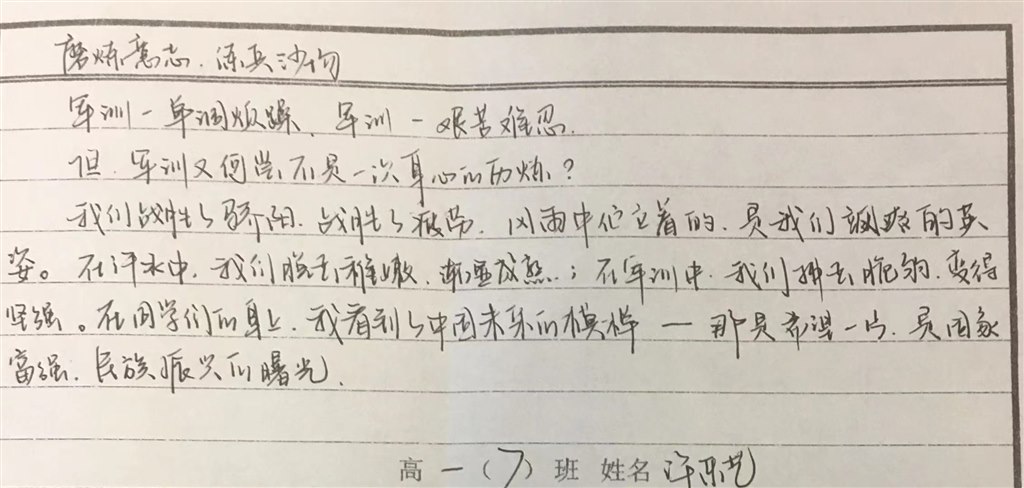 磨炼意志，练兵沙场
军训一单调烦躁，军训一艰苦难忍.
但，军训又何尝不是一次身心的历炼？
我们战胜了骄阳，战胜了疲劳，风雨中伫立着的，是我们飒爽的英
姿。在汗水中，我们脱去稚嫩，渐渐成熟；在军训中，我们拂去脆弱，变得
坚强。在同学们的身上，我看到了中国未来的模样 — 那是希望一片，是国家
富强，民族振兴的曙光.
高一（7）班 姓名 许